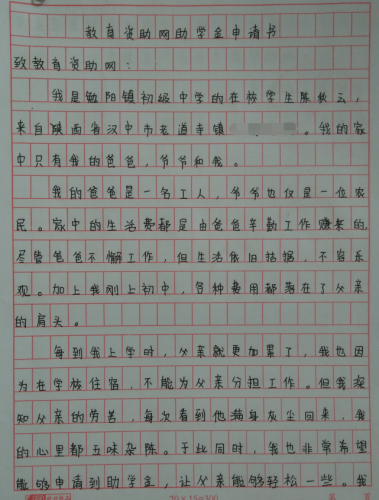 教育资助网助学金申请书
致教育资助网：
我是勉阳镇初级中学的在校学生陈秋云，
来自陕西省汉中市老道寺镇。我的家
中只有我的爸爸，爷爷和我。
我的爸爸是一名工人，爷爷也仅是一位农
民。家中的生活费都是由爸爸辛勤工作赚来的，
尽管爸爸不懈工作，但生活依旧拮据，不容乐
观。加上我刚上初中，各种费用都落在了父亲
的肩头。
每到我上学时，父亲就更加累了，我也因
为在学校住宿，不能为父亲分担工作。但我深
知父亲的劳苦，每次看到他满身灰尘回来，我
的心里都五味杂陈。于此同时，我也非常希望
能够申请到助学金，让父亲能够轻松一些。我
20×15=300